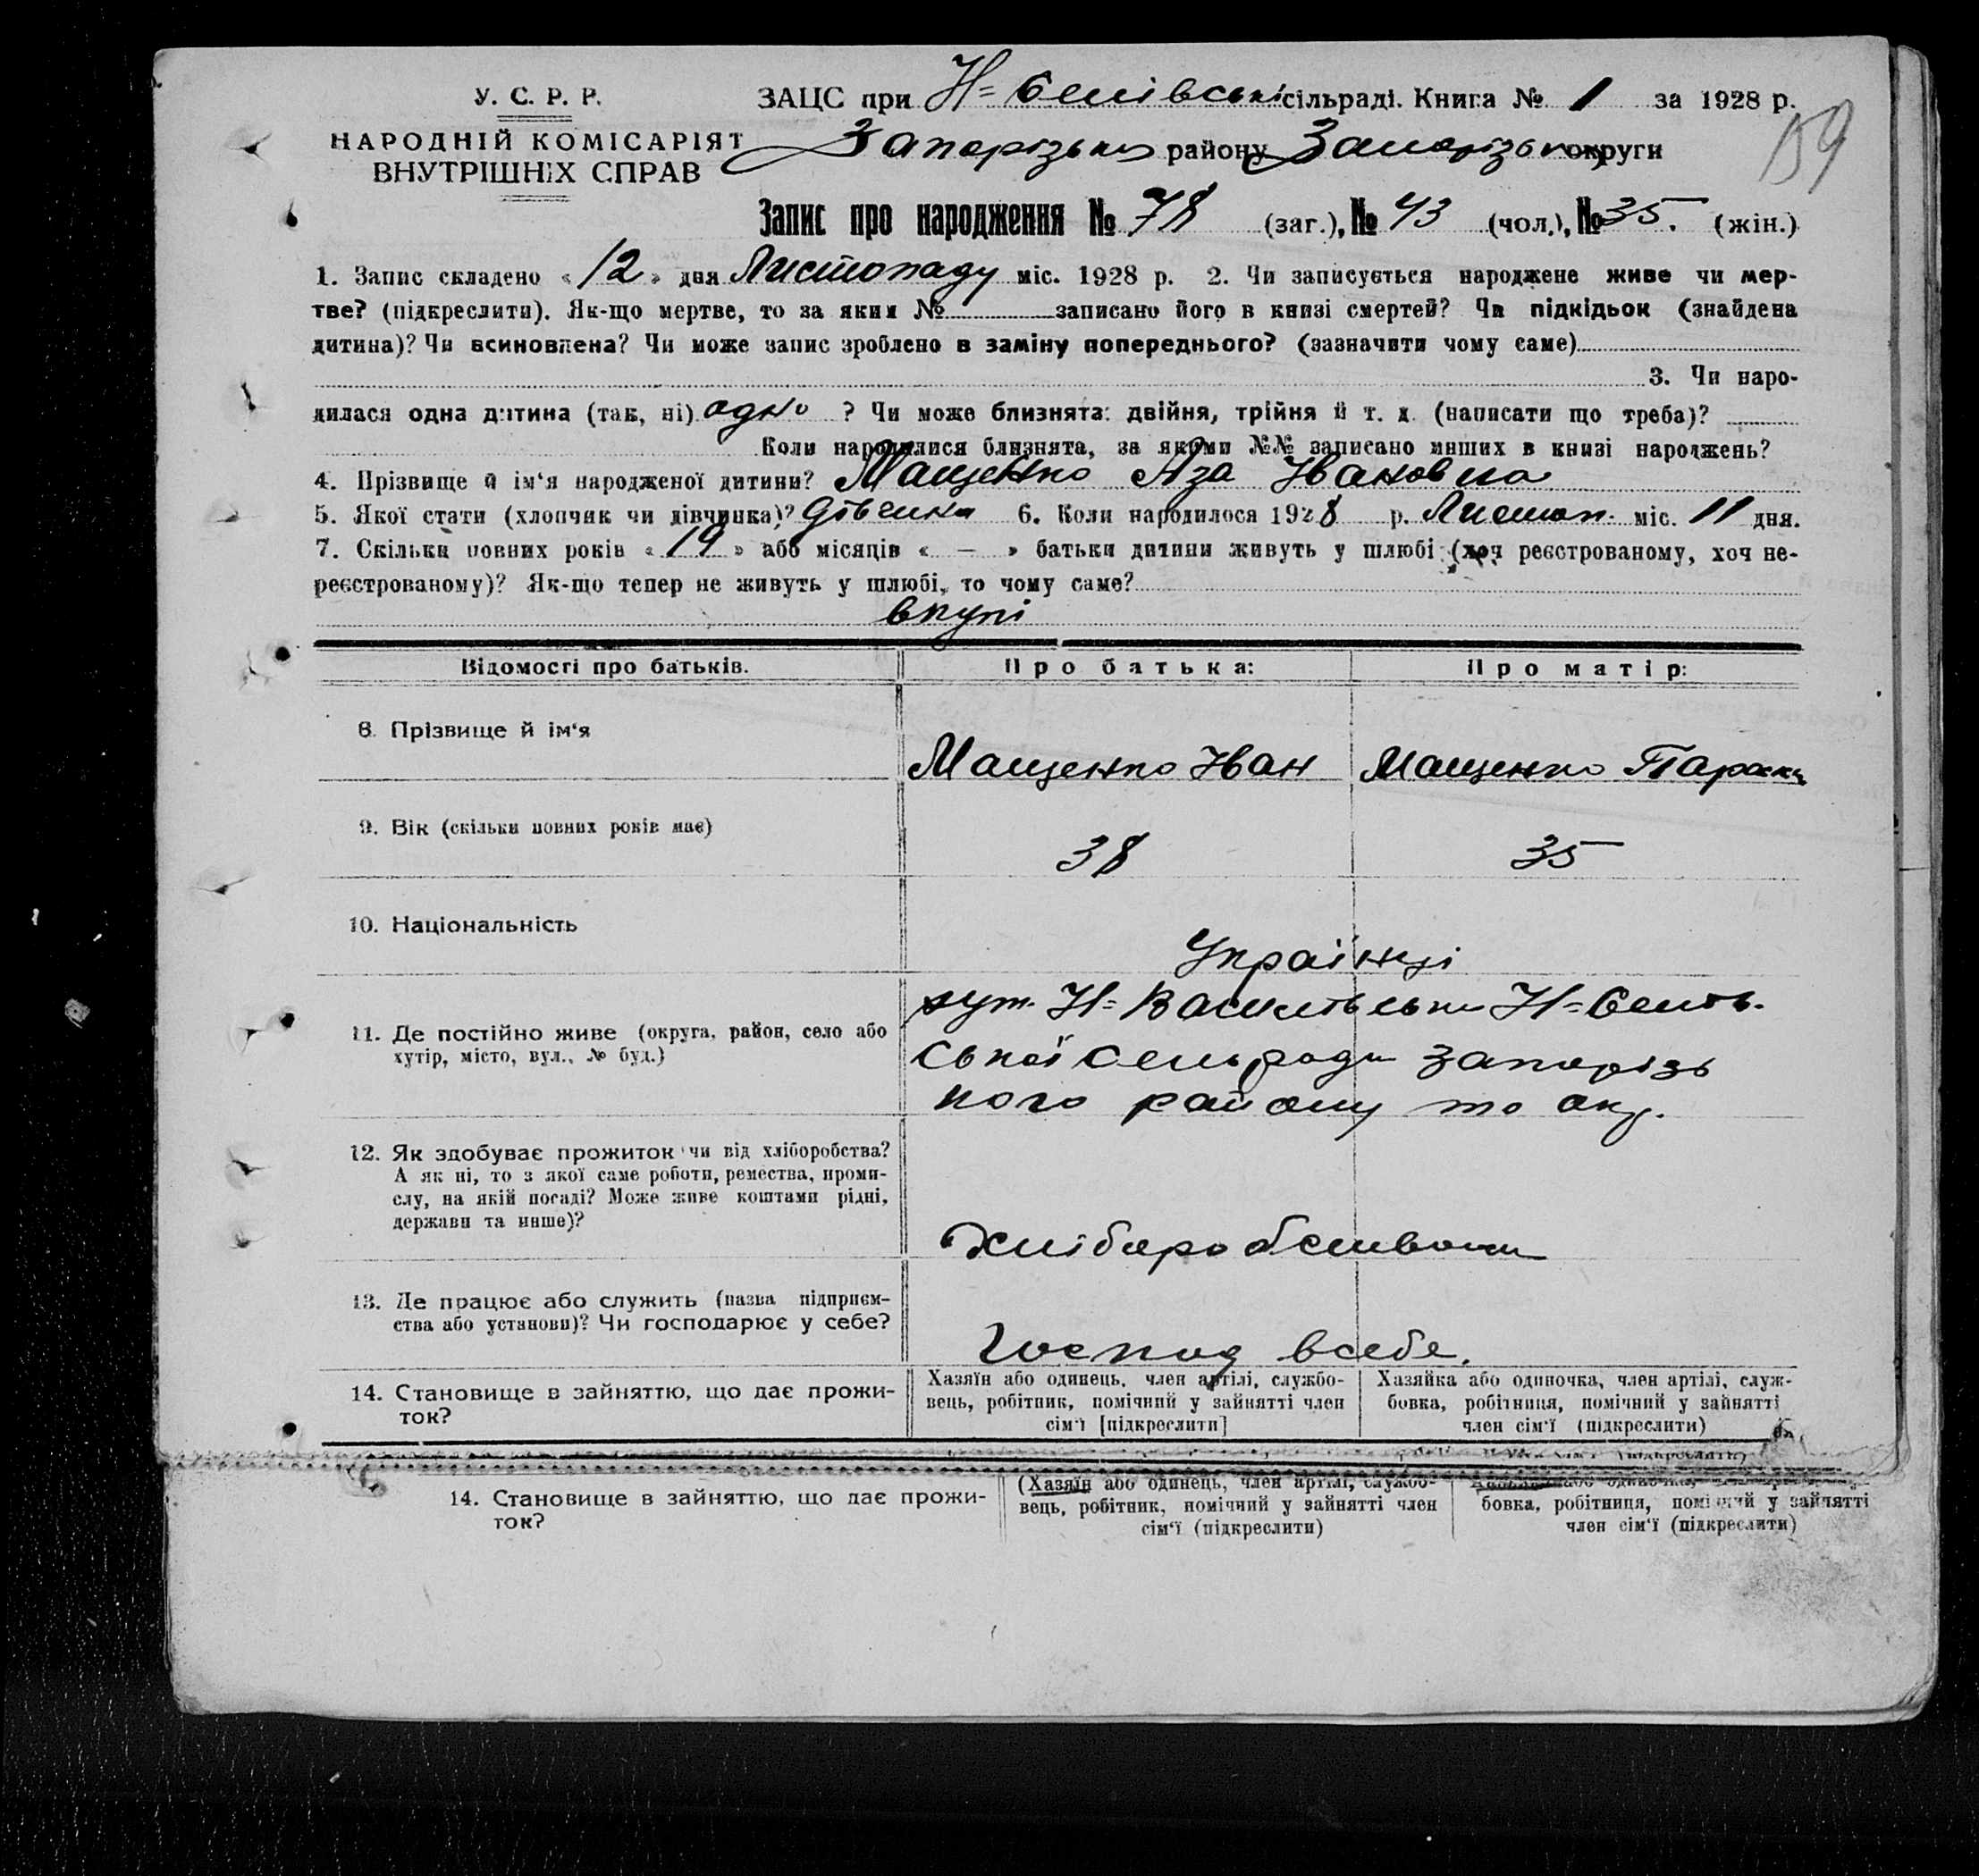 У. С. Р. Р.
НАРОДНІЙ КОМІСАРІЯТ
ВНУТРІШНІХ СПРАВ
ЗАЦС при сільраді. Книга № 1 за 1928 р.
Запорізьк району Запорізьк округи
159
Запис про народження № 78 (заг.), № 43 (чол.), № 35. (жін.)
1. Запис складено « 12 » дня Листопаду міс. 1928 р. 2. Чи записується народжене живе чи мер-
тве? (підкреслити). Як-що мертве, то за яким № записано його в книзі смертей? Чи підкідьок (знайдена
дитина)? Чи всиновлена? Чи може запис зроблено в заміну попереднього? (зазначити чому саме)
3. Чи наро-
дилася одна дитина (так, ні) одно ? Чи може близнята: двійня, трійня й т. д. (написати що треба)?
Коли народилися близнята, за якими №№ записано инших в книзі народжень?
4. Прізвище й ім'я народженої дитини? Мащенко Аза Івановна
5. Якої стати (хлопчик чи дівчинка)? 6. Коли народилося 1928 р. Листоп. міс. 11 дня.
7. Скільки повних років « 19 » або місяців « — » батьки дитини живуть у шлюбі (хоч реєстрованому, хоч не-
реєстрованому)? Як-що тепер не живуть у шлюбі, то чому саме?
вкупі
Відомості про батьків. Про батька: Про матір:
8. Прізвище й ім'я Мащенко Іван Мащенко Параска
9. Вік (скільки повних років має) 38 35
10. Національність Українці
11. Де постійно живе (округа, район, село або
хутір, місто, вул., № буд.)
хут. Н=
ської сельради Запорізь
кого району та окр.
12. Як здобуває прожиток чи від хліборобства?
А як ні, то з якої саме роботи, ремества, проми-
слу, на якій посаді? Може живе коштами рідні,
держави та инше)?
Хліборобством
13. Де працює або служить (назва підприєм-
ства або установи)? Чи господарює у себе?
Господ всебе.
14. Становище в зайняттю, що дає прожи-
ток?
Хазяїн або одинець, член артілі, службо-
вець, робітник, помічний у зайнятті член
сім'ї [підкреслити]
Хазяйка або одиночка, член артілі, служ-
бовка, робітниця, помічний у зайнятті
член сім'ї (підкреслити)
14. Становище в зайняттю, що дає прожи-
ток?
(Хазяїн або одинець, член артілі, службо-
вець, робітник, помічний у зайнятті член
сім'ї (підкреслити)
бовка, робітниця, помічний у зайнятті
член сім'ї (підкреслити)